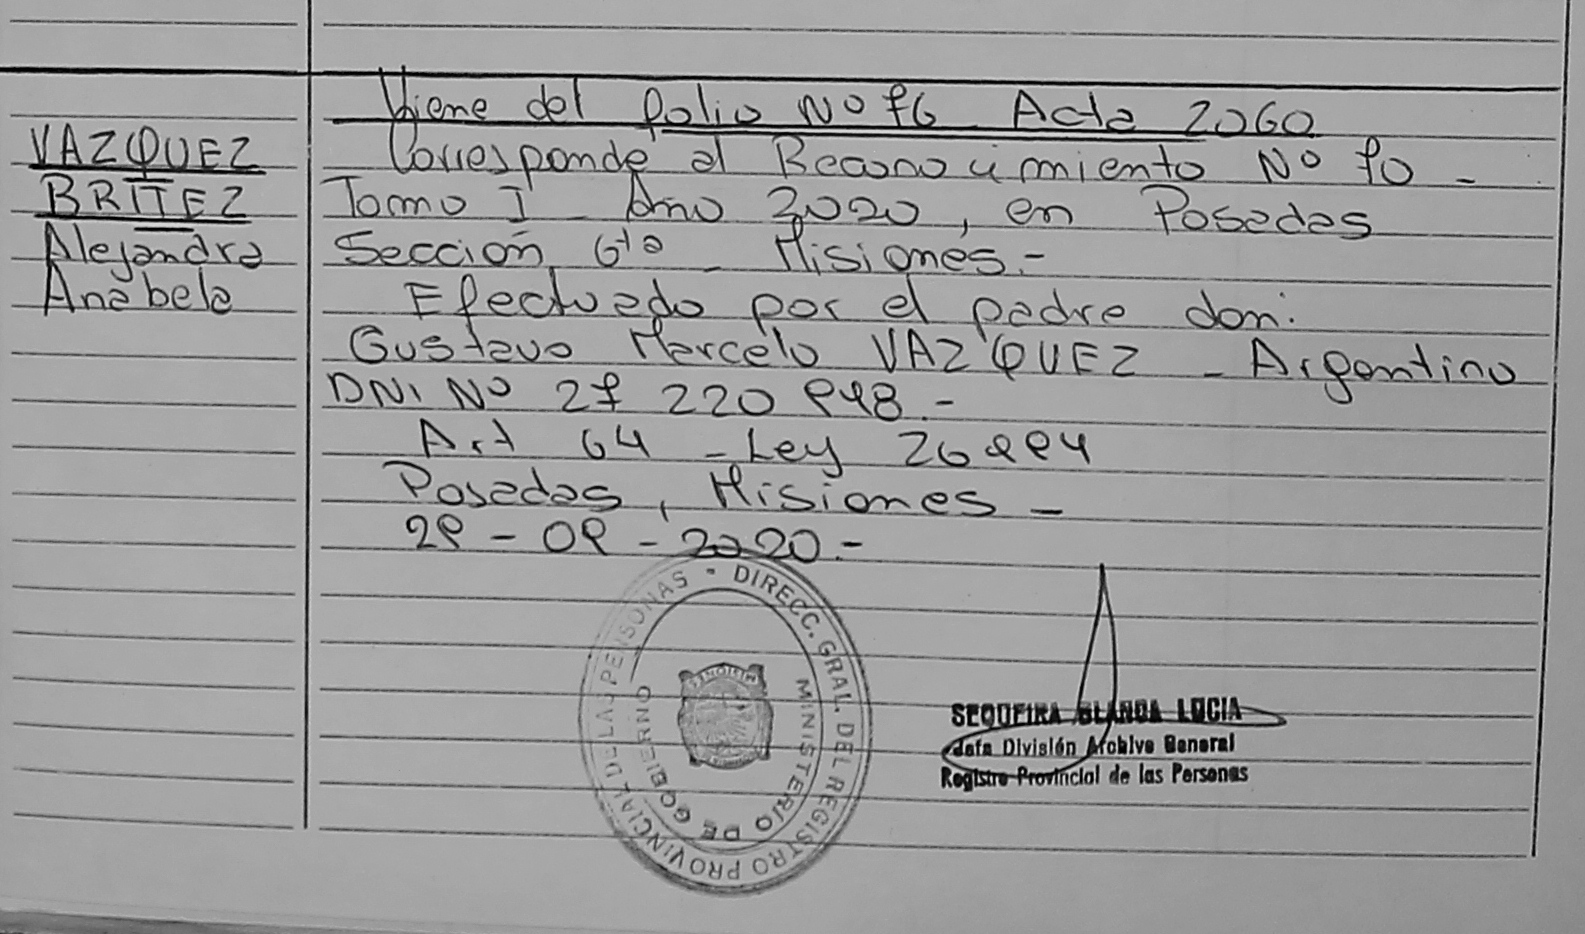 Viene del folio Nº 76 Acta 2060
VAZQUEZ
BRITEZ
Alejandra
Anabela
Corresponde al Reconocimiento Nº 70 -
Tomo I - Año 2020, en Posadas
Sección 6ta - Misiones.-
Efectuado por el padre don:
Gustavo Marcelo VAZQUEZ - Argentino
DNI Nº 27 220 948.-
Art 64 - Ley 26994
Posadas, Misiones -
29 - 09 - 2020.-
DIRECC. GRAL. DEL REGISTRO PROVINCIAL DE LAS PERSONAS
MINISTERIO DE GOBIERNO
MISIONES
SEQUEIRA BLANCA LUCIA
Jefa División Archivo General
Registro Provincial de las Personas